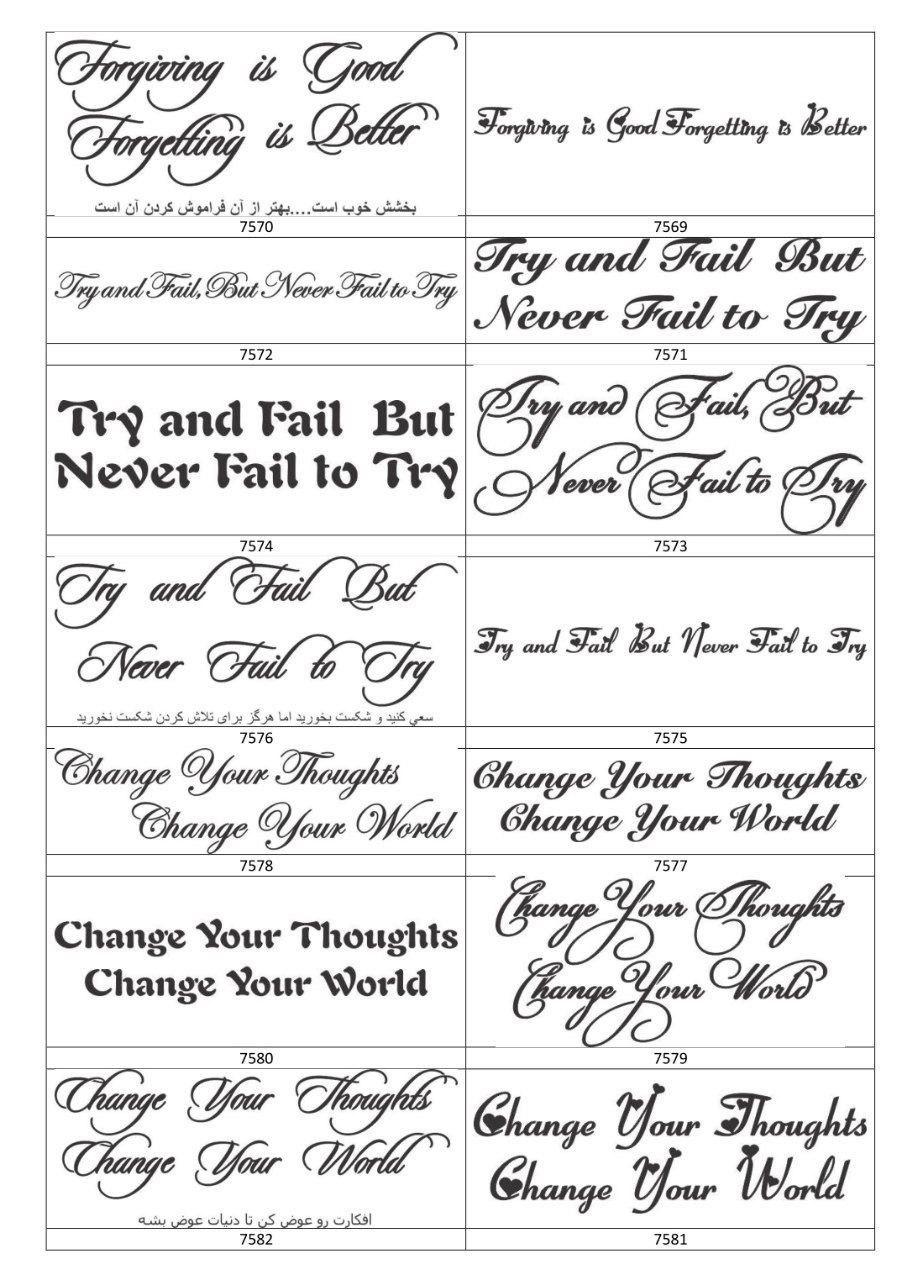 Forgiving is Good
Forgetting is Better
بخشش خوب است....بهتر از آن فراموش کردن آن است
7570
Forgiving is Good Forgetting is Better
7569
Try and Fail, But Never Fail to Try
7572
Try and Fail But
Never Fail to Try
7571
Try and Fail But
Never Fail to Try
7574
Try and Fail, But
Never Fail to Try
7573
Try and Fail But
Never Fail to Try
سعي کنيد و شکست بخوريد اما هرگز براي تلاش کردن شکست نخوريد
7576
Try and Fail But Never Fail to Try
7575
Change Your Thoughts
Change Your World
7578
Change Your Thoughts
Change Your World
7577
Change Your Thoughts
Change Your World
7580
Change Your Thoughts
Change Your World
7579
Change Your Thoughts
Change Your World
افکارت رو عوض کن تا دنیات عوض بشه
7582
Change Your Thoughts
Change Your World
7581